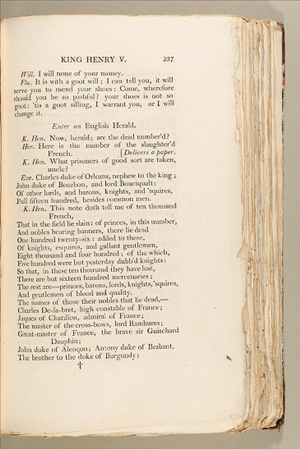 KING HENRY V. 237
Will. I will none of your money.
Flu. It is with a goot will; I can tell you, it will
serve you to mend your shoes: Come, wherefore
should you be so pashful? your shoes is not so
goot: 'tis a goot silling, I warrant you, or I will
change it.
Enter an English Herald.
K. Hen. Now, herald; are the dead number'd?
Her. Here is the number of the slaughter'd
French. [Delivers a paper.
K. Hen. What prisoners of good sort are taken,
uncle?
Exe. Charles duke of Orleans, nephew to the king;
John duke of Bourbon, and lord Bouciqualt:
Of other lords, and barons, knights, and 'squires,
Full fifteen hundred, besides common men.
K. Hen. This note doth tell me of ten thousand
French,
That in the field lie slain: of princes, in this number,
And nobles bearing banners, there lie dead
One hundred twenty-six: added to these,
Of knights, esquires, and gallant gentlemen,
Eight thousand and four hundred; of the which,
Five hundred were but yesterday dubb'd knights:
So that, in these ten thousand they have lost,
There are but sixteen hundred mercenaries;
The rest are—princes, barons, lords, knights, 'squires,
And gentlemen of blood and quality.
The names of those their nobles that lie dead,—
Charles De-la-bret, high constable of France;
Jaques of Chatillon, admiral of France;
The master of the cross-bows, lord Rambures;
Great-master of France, the brave sir Guischard
Dauphin;
John duke of Alençon; Antony duke of Brabant,
The brother to the duke of Burgundy;
†